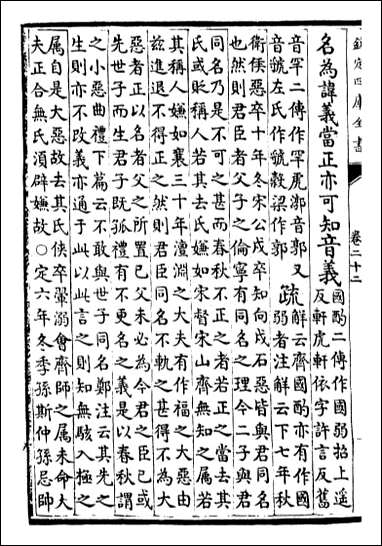 欽定四庫全書
卷二十二
名為諱義當正亦可知音義
國酌二傳作國弱招上遥
反軒虎軒依字許言反舊
音罕二傳作罕虎漷音郭又
音虢左氏作虢穀梁作郭
疏
解云齊國酌亦有作國
弱者注解云下七年秋
衛侯惡卒十年冬宋公戌卒知向戌石惡皆與君同名
也然則君臣者父子之倫寧有同名之理今二子與君
同名乃是不可之甚而春秋不正之者若正之當去其
氏或貶稱人若其去氏嫌如宋督宋山齊無知之屬若
其稱人嫌如襄三十年澶淵之大夫有作福之大惡由
兹進退不得正之然則君臣同名不軌之甚得不為大
惡者正以名者父之所置已父未必為今君之臣已或
先世子而生君子既孤禮有不更名之義是以春秋謂
之小惡曲禮下篇云不敢與世子同名鄭注云其先之
生則亦不改義亦通于此以此言之則知無駭入極之
屬自是大惡故去其氏俠卒翬溺會齊師之屬未命大
夫正合無氏湏辟嫌故○定六年冬季孫斯仲孫忌帥